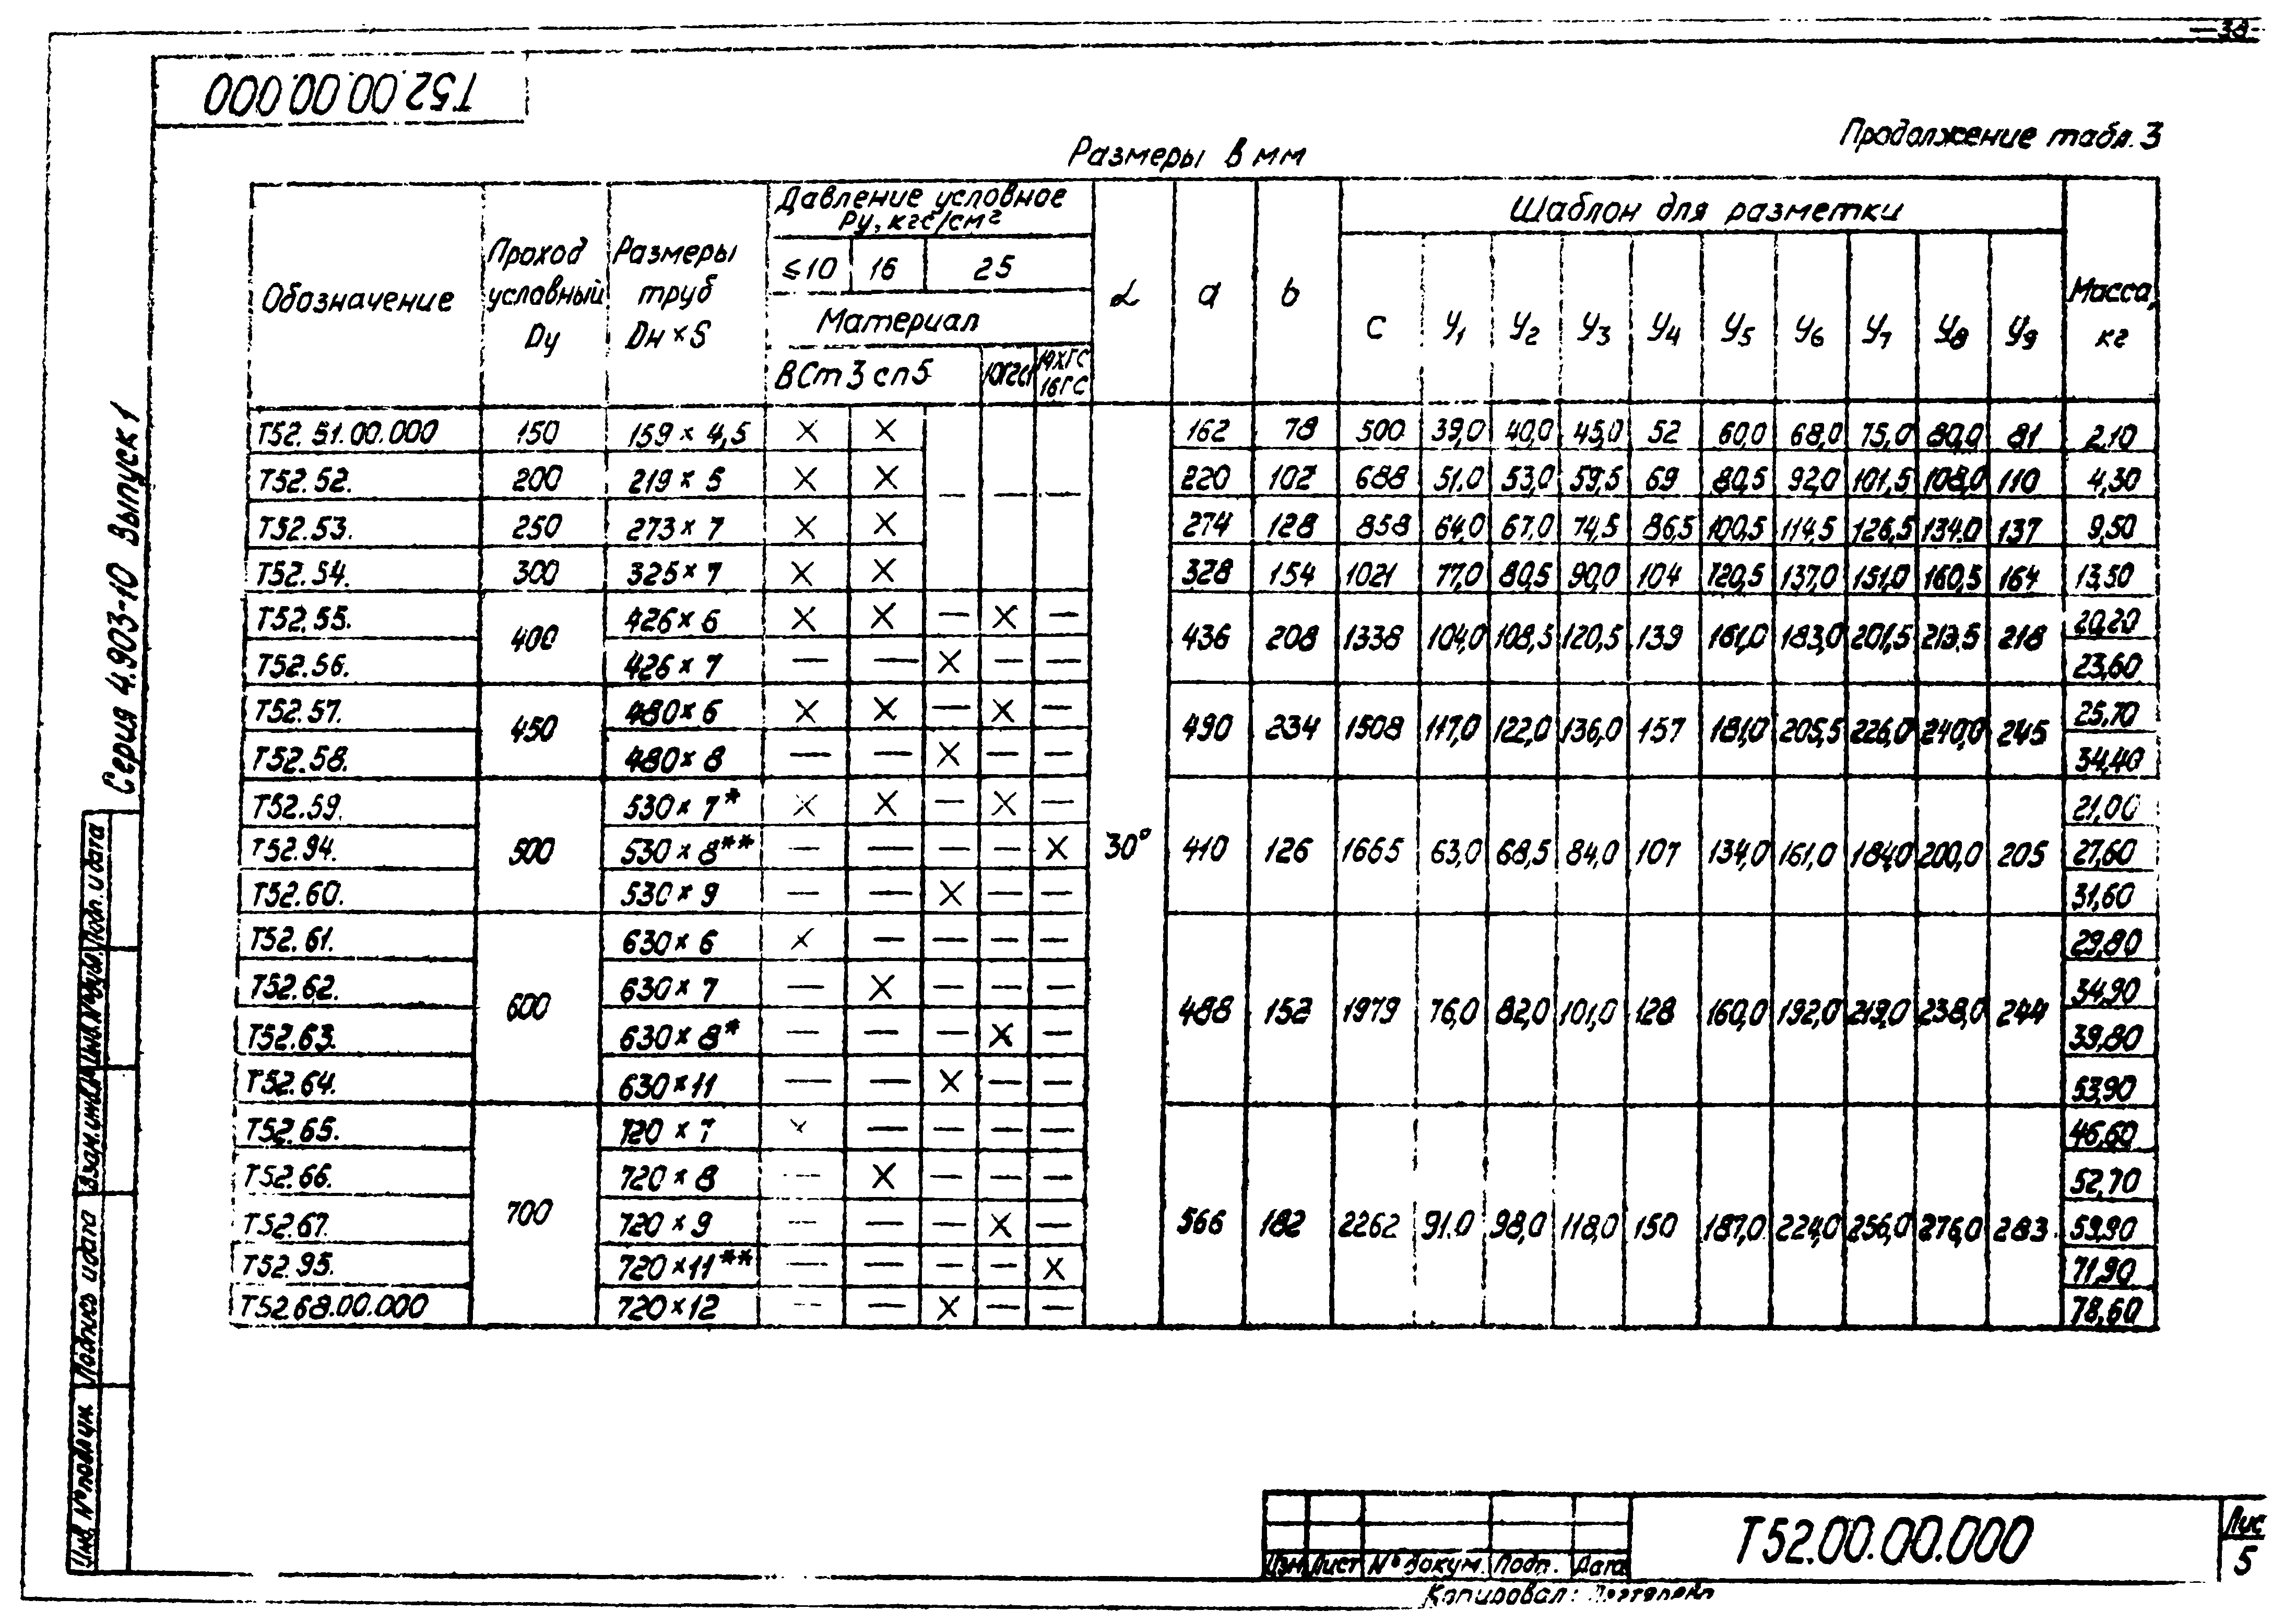 38
Т52.00.00.000
Продолжение табл. 3
Размеры в мм
Обозначение | Проход условный Dу | Размеры труб Dн × S | Давление условное Pу, кгс/см² | α | a | b | Шаблон для разметки | Масса, кг
≤10 | 16 | 25
Материал
ВСт3сп5 | 10Г2С1 | 14ХГС 16ГС | C | У1 | У2 | У3 | У4 | У5 | У6 | У7 | У8 | У9
Т52.51.00.000 | 150 | 159 × 4,5 | × | × | 162 | 78 | 500 | 39,0 | 40,0 | 45,0 | 52 | 60,0 | 68,0 | 75,0 | 80,0 | 81 | 2,10
Т52.52. | 200 | 219 × 5 | × | × | — | — | — | 220 | 102 | 688 | 51,0 | 53,0 | 59,5 | 69 | 80,5 | 92,0 | 101,5 | 108,0 | 110 | 4,30
Т52.53. | 250 | 273 × 7 | × | × | 274 | 128 | 858 | 64,0 | 67,0 | 74,5 | 86,5 | 100,5 | 114,5 | 126,5 | 134,0 | 137 | 9,50
Т52.54. | 300 | 325 × 7 | × | × | 328 | 154 | 1021 | 77,0 | 80,5 | 90,0 | 104 | 120,5 | 137,0 | 151,0 | 160,5 | 164 | 13,50
Т52.55. | 400 | 426 × 6 | × | × | — | × | — | 436 | 208 | 1338 | 104,0 | 108,5 | 120,5 | 139 | 161,0 | 183,0 | 201,5 | 213,5 | 218 | 20,20
Т52.56. | 426 × 7 | — | — | × | — | — | 23,60
Т52.57. | 450 | 480 × 6 | × | × | — | × | — | 490 | 234 | 1508 | 117,0 | 122,0 | 136,0 | 157 | 181,0 | 205,5 | 226,0 | 240,0 | 245 | 25,70
Т52.58. | 480 × 8 | — | — | × | — | — | 34,40
Т52.59. | 530 × 7* | × | × | — | × | — | 21,00
Т52.94. | 500 | 530 × 8** | — | — | — | — | × | 30° | 410 | 126 | 1665 | 63,0 | 68,5 | 84,0 | 107 | 134,0 | 161,0 | 184,0 | 200,0 | 205 | 27,60
Т52.60. | 530 × 9 | — | — | × | — | — | 31,60
Т52.61. | 630 × 6 | × | — | — | — | — | 29,80
Т52.62. | 600 | 630 × 7 | — | × | — | — | — | 488 | 152 | 1979 | 76,0 | 82,0 | 101,0 | 128 | 160,0 | 192,0 | 219,0 | 238,0 | 244 | 34,90
Т52.63. | 630 × 8* | — | — | — | × | — | 39,80
Т52.64. | 630 × 11 | — | — | × | — | — | 53,90
Т52.65. | 720 × 7 | × | — | — | — | — | 46,60
Т52.66. | 720 × 8 | — | × | — | — | — | 52,70
Т52.67. | 700 | 720 × 9 | — | — | — | × | — | 566 | 182 | 2262 | 91,0 | 98,0 | 118,0 | 150 | 187,0 | 224,0 | 256,0 | 276,0 | 283 | 59,90
Т52.95. | 720 × 11** | — | — | — | — | × | 71,90
Т52.68.00.000 | 720 × 12 | — | — | × | — | — | 78,60
Серия 4.903-10 Выпуск 1
Инв. № подлуж | Подпись и дата | Взам. инв. № | Инв. № дубл. | Подп. и дата
Изм | Лист | № докум. | Подп. | Дата
Т52.00.00.000
Лис
5
Копировал: